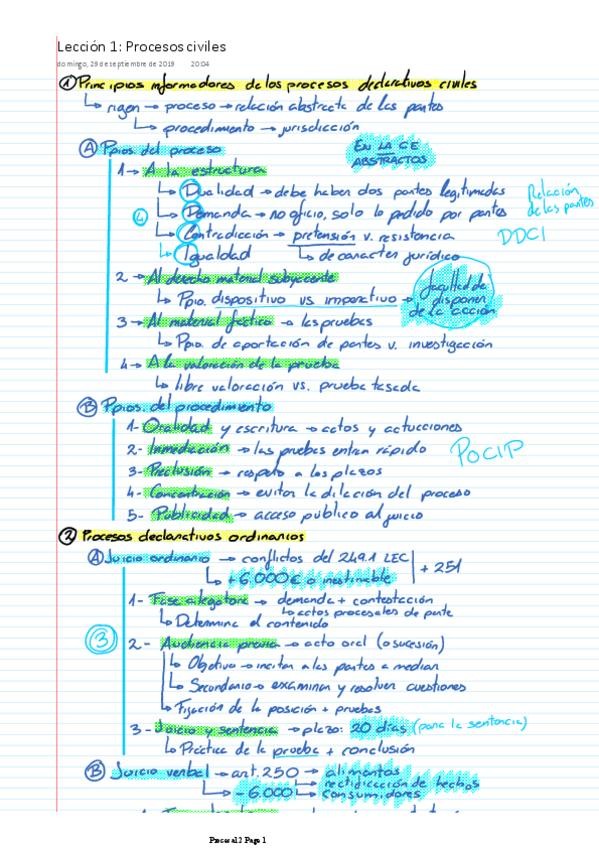 Lección 1: Procesos civiles
domingo, 29 de septiembre de 2019 20:04
① Principios informadores de los procesos declarativos civiles
↳ rigen → proceso → relación abstracta de las partes
↳ procedimiento → jurisdicción
Ⓐ Ppios del proceso
EN LA CE
ABSTRACTOS
1 → A la estructura
↳ Dualidad → debe haben dos partes legitimadas
Relación
de las partes
④ ↳ Demanda → no oficio, solo lo pedido por partes
↳ Contradicción → pretensión v. resistencia
DDCI
↳ Igualdad ↳ de caracter jurídico
2 → Al derecho material subyacente
↳ Ppio. dispositivo vs imperativo → facultad de
disponer
de la acción
3 → Al material fáctico → las pruebas
↳ Ppio. de aportación de partes v. investigación
4 → A la valoración de la prueba
↳ libre valoración vs. prueba tasada
Ⓑ Ppios. del procedimiento
1- Oralidad y escritura → actos y actuciones
2- Inmediación → las pruebas entran rápido
POCIP
3- Preclusión → respeto a los plazos
4- Concentración → evitar la dilación del proceso
5- Publicidad → acceso público al juicio
② Procesos declarativos ordinarios
Ⓐ Juicio ordinario → conflictos del 249.1 LEC
+ 251
↳ +6.000€ o inestimable
1- Fase alegatoria → demanda + contestación
↳ actos procesales de parte
↳ Determina el contenido
③ 2- Audiencia previa → acto oral (o sucesión)
↳ Objetivo → incitar a las partes a mediar
↳ Secundario → examinar y resolver cuestiones
↳ Fijación de la posición + pruebas
3- Juicio y sentencia → plazo: 20 días (para la sentencia)
↳ Práctica de la prueba + conclusión
Ⓑ Juicio verbal → art. 250 → alimentos
↳ rectificación de hechos
↳ - 6.000 ↳ consumidores
Procesal 2 Page 1